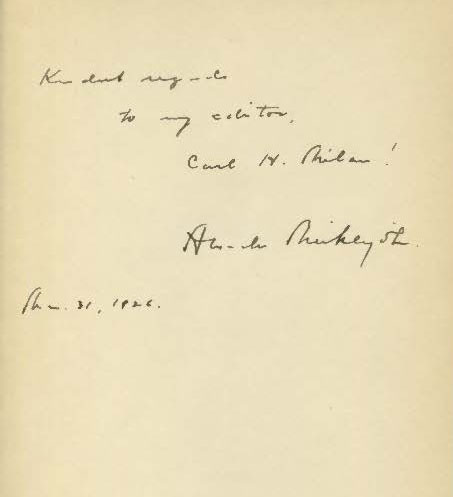 Kindest regards
to my editor,
Carl H. Milam!
Alexander Meiklejohn.
Mar. 31, 1926.